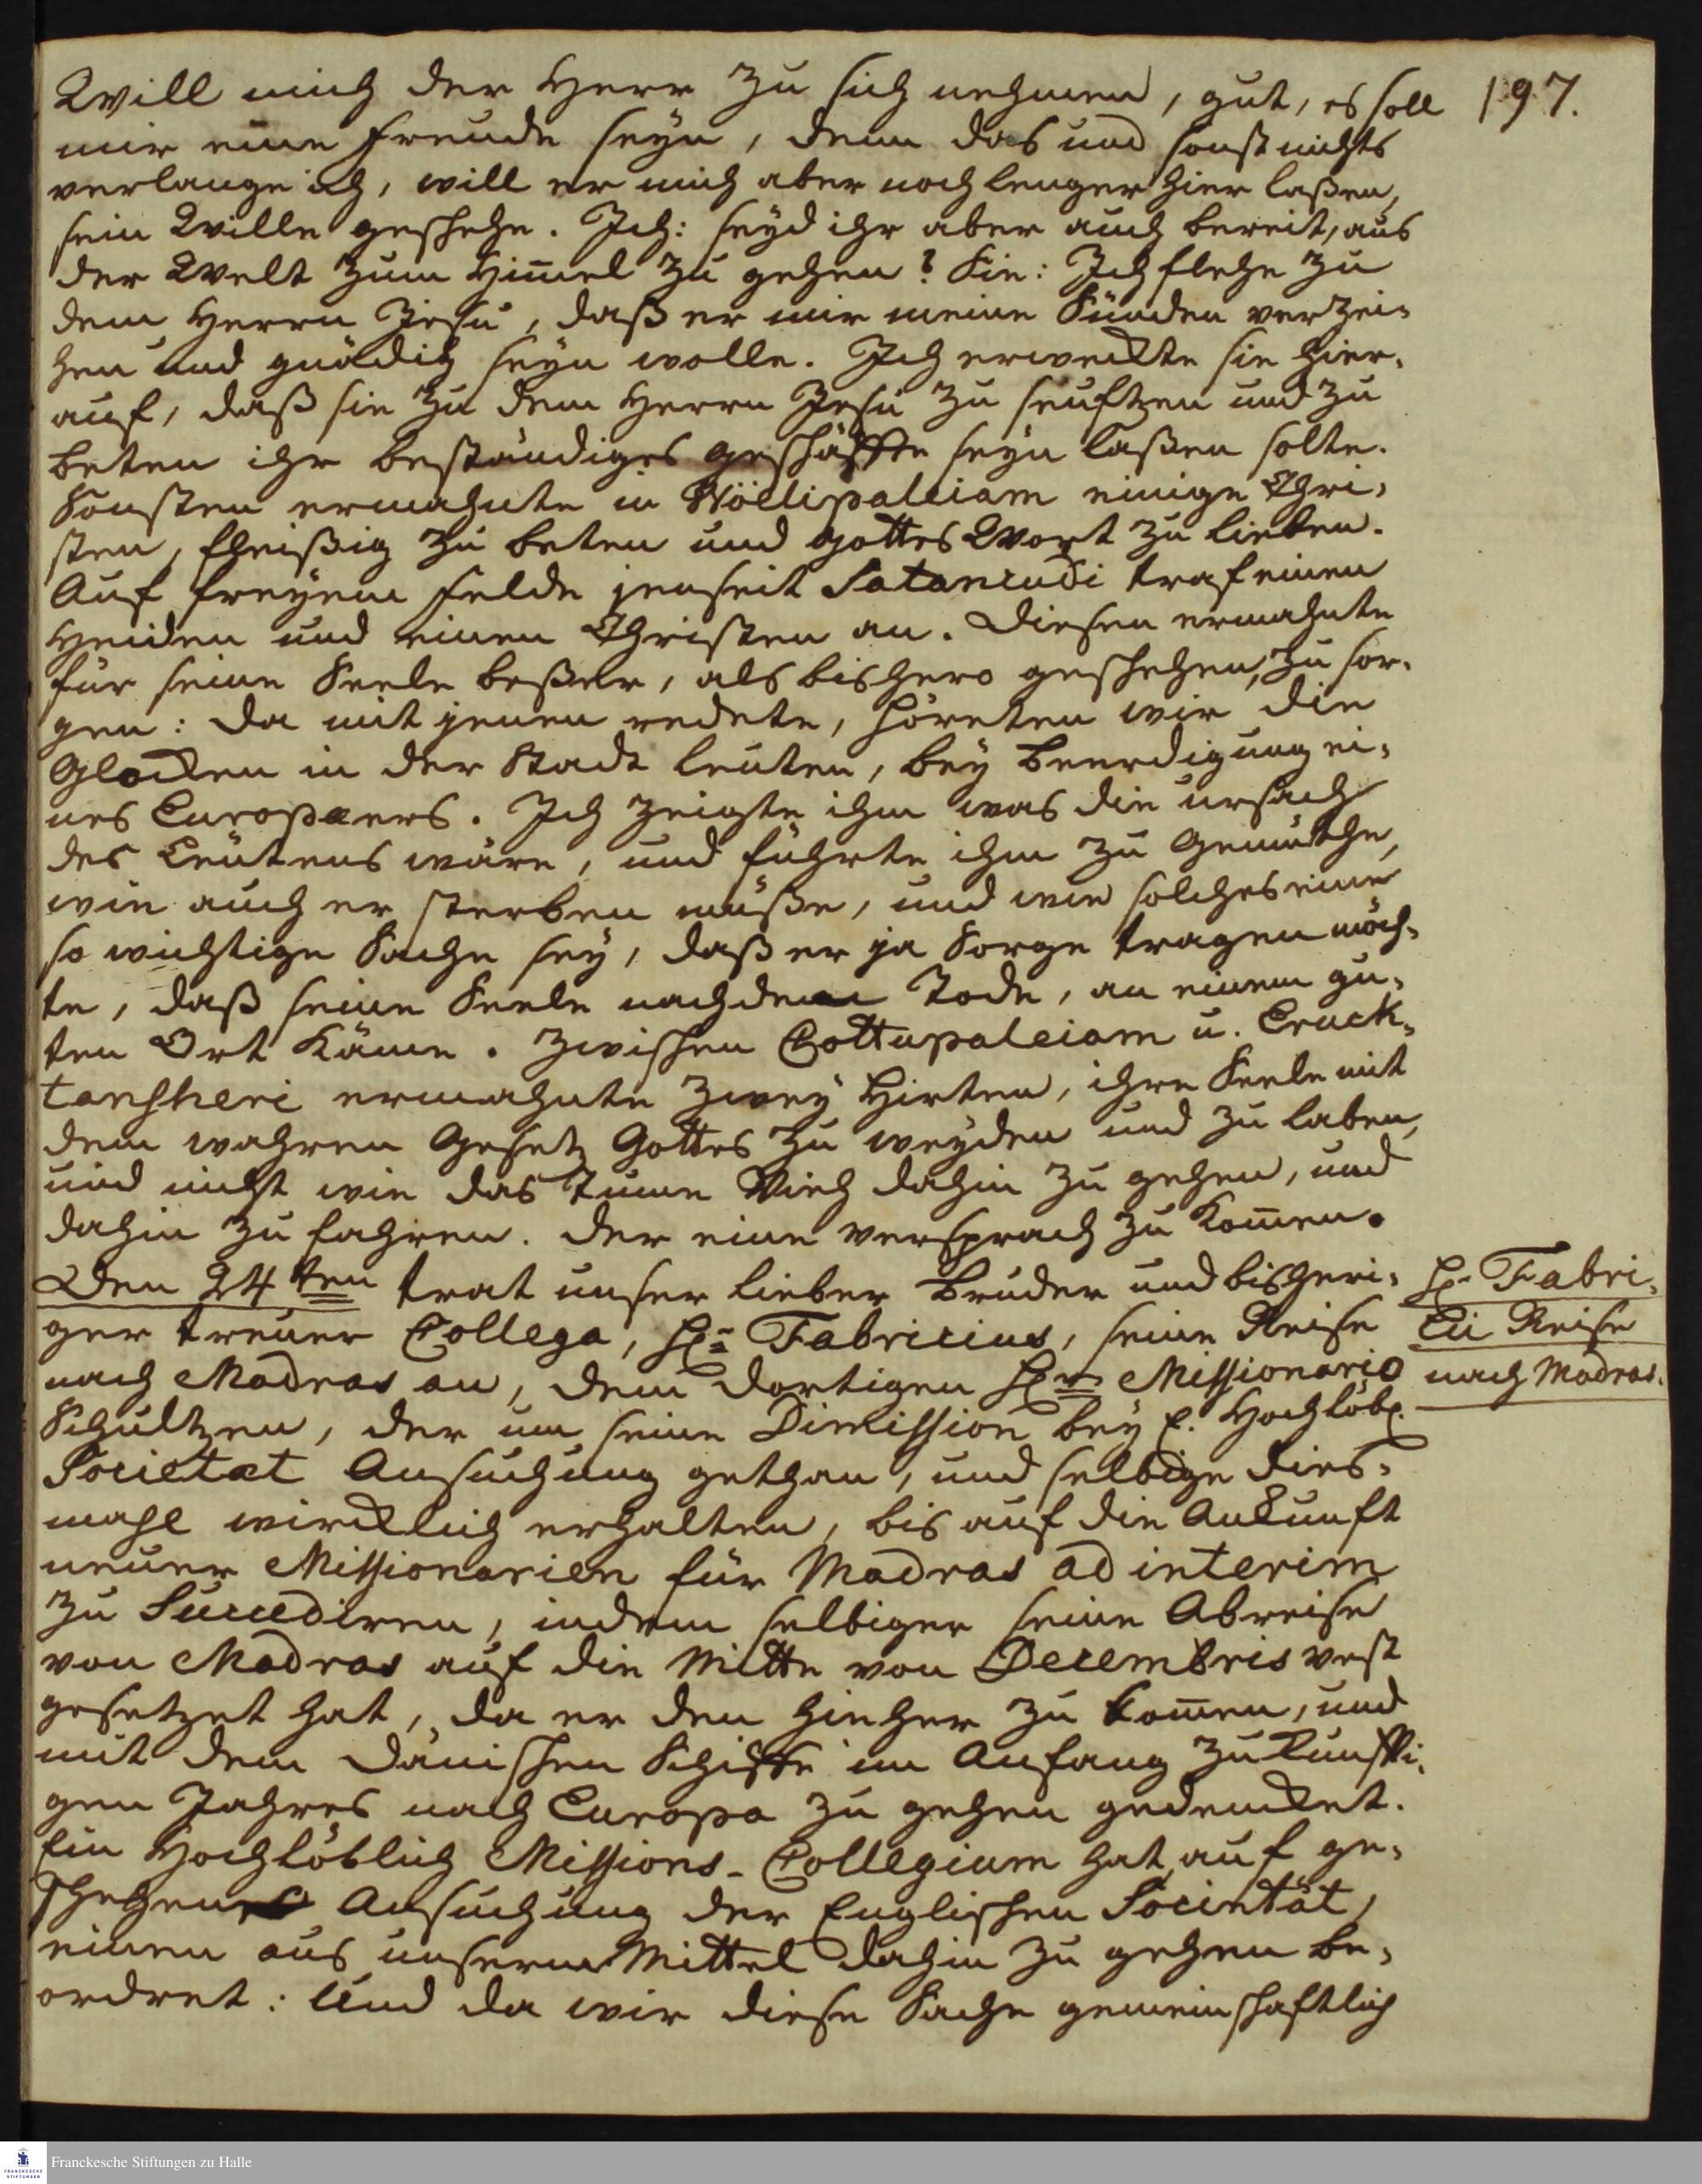 197.
Will mich der Herr zu sich nehmen, gut, es soll
mir eine Freude seyn, denn das und sonst nichts
verlange ich, will er mich aber noch lenger hier laßen,
sein Wille geschehe. Ich: seyd ihr aber auch bereit, aus
der Welt zum Him̅el zu gehen? Sie: Ich flehe zu
dem Herrn Jesu, daß er mir meine Sünden verzei-
hen und gnädig seyn wolle. Ich erweckte sie hier-
auf, daß sie zu dem Herrn Jesu zu seuftzen und zu
beten ihr beständiges Geschäffte seyn laßen solte.
Sonsten ermahnte in Wöllipaleiam einige Chri-
sten, fleißig zu beten und Gottes Wort zu lieben.
Auf freyem Felde jenseit Satancudi traf einen
Heiden und einen Christen an. Diesen ermahnte
für seine Seele beßer, als bishero geschehen, zu sor-
gen: Da mit jenen redete, höreten wir die
Glocken in der Stadt leuten, bey Beerdigung ei-
nes Europaeers. Ich zeigte ihm was die ursach
des Leutens wäre, und führte ihm zu Gemüthe,
wie auch er sterben müße, und wie solches eine
so wichtige Sache sey, daß er ja Sorge tragen möch-
te, daß seine Seele nach dem Tode, an einem gu-
ten Ort käme. Zwischen Cottupaleiam u. Cruck-
tansheri ermahnte zwey Hirten, ihre Seele mit
dem wahren Gesetz Gottes zu weyden und zu laben,
und nicht wie das Tume Vieh dahin zu gehen, und
dahin zu fahren. Der eine versprach zu kom̅en.
Den 24ten trat unser lieber Bruder und bisheri-
ger treuer Collega, H. Fabricius, seine Reise
nach Madras an, dem dortigen Hrn Missionario
Schultzen, der um seine Dimission bey E. Hochlöbl.
Societaet Ansuchung gethan, und selbige dies-
mahl wircklich erhalten, bis auf die Ankunft
neuer Missionarien für Madras ad interim
zu Succediren, indem selbiger seine Abreise
von Madras auf die Mitte von Decembris vest
gesetzet hat, da er den hieher zu kom̅en, und
mit dem Dänischen Schiffe im Anfang zukünffti-
gen Jahres nach Europa zu gehen gedencket.
Ein Hochlöblich Missions-Collegium hat auf ge-
schehene Ansuchung der Englischen Societät,
einen aus unserm Mittel dahin zu gehen be-
ordret: Und da wir diese Sache gemeinschaftlich
H. Fabri-
cii Reise
nach Madras.
Franckesche Stiftungen zu Halle
FRANCKESCHE
STIFTUNGEN